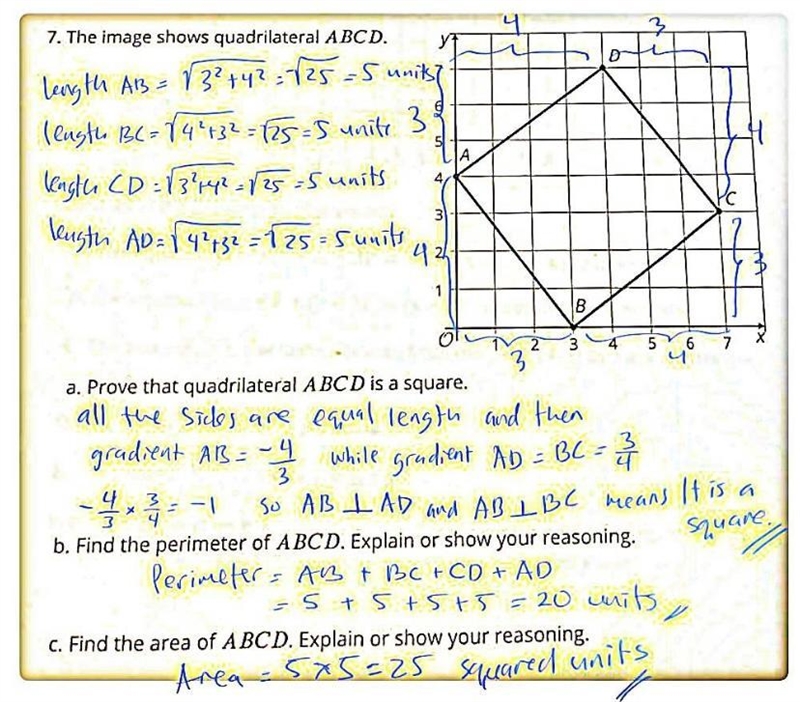 7. The image shows quadrilateral ABCD.
length AB = √3²+4² = √25 = 5 units
length BC = √4²+3² = √25 = 5 units
length CD = √3²+4² = √25 = 5 units
length AD = √4²+3² = √25 = 5 units
4 3
y
D
7
6
3
5
4
A
4
C
3
4
2
3
1
B
O 1 2 3 4 5 6 7 x
3 4
a. Prove that quadrilateral ABCD is a square.
all the sides are equal length and then
gradient AB = -4/3 while gradient AD = BC = 3/4
-4/3 × 3/4 = -1 so AB ⊥ AD and AB ⊥ BC means It is a
square.
b. Find the perimeter of ABCD. Explain or show your reasoning.
Perimeter = AB + BC + CD + AD
= 5 + 5 + 5 + 5 = 20 units
c. Find the area of ABCD. Explain or show your reasoning.
Area = 5×5 = 25 squared units